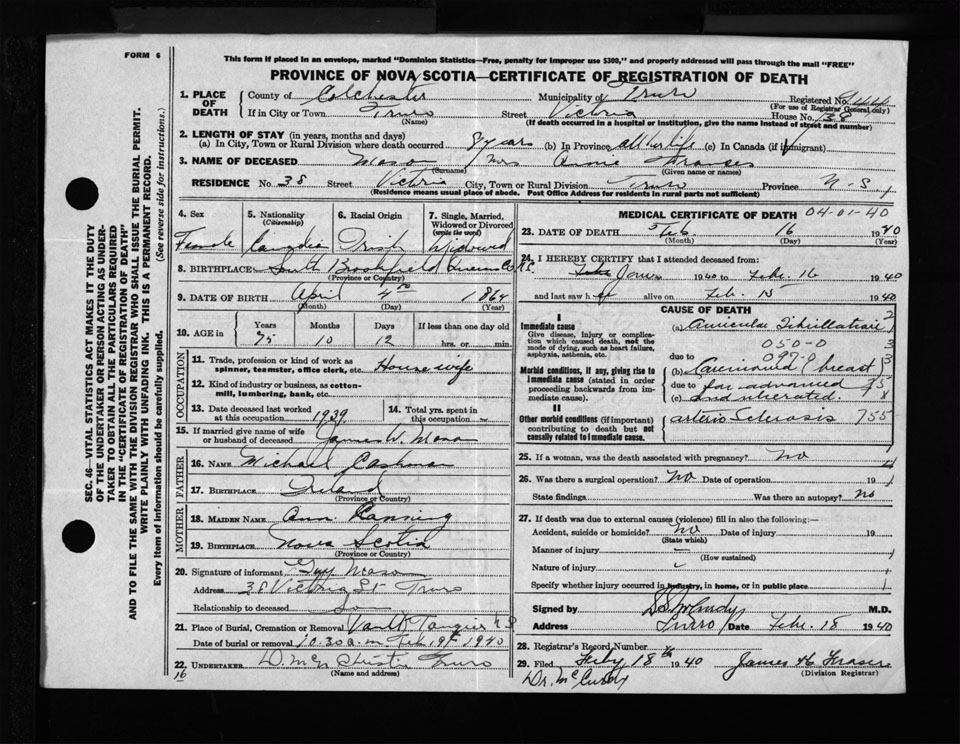 FORM 6
This form if placed in an envelope, marked "Dominion Statistics—Free, penalty for improper use $300," and properly addressed will pass through the mail "FREE"
PROVINCE OF NOVA SCOTIA—CERTIFICATE OF REGISTRATION OF DEATH
1. PLACE OF DEATH
County of Colchester Municipality of Truro Registered No.
(For use of Registrar General only)
If in City or Town Truro Street Victoria House No. 38
(Name) (If death occurred in a hospital or institution, give the name instead of street and number)
2. LENGTH OF STAY (in years, months and days)
(a) In City, Town or Rural Division where death occurred 8 years (b) In Province all her life (c) In Canada (if immigrant)
3. NAME OF DECEASED Mason Mrs Annie Frances
(Surname) (Given name or names)
RESIDENCE No. 38 Street Victoria City, Town or Rural Division Truro Province N.S.
(Residence means usual place of abode. Post Office Address for residents in rural parts not sufficient)
SEC. 46—VITAL STATISTICS ACT MAKES IT THE DUTY
OF THE UNDERTAKER OR PERSON ACTING AS UNDERTAKER
TO OBTAIN ALL THE PARTICULARS REQUIRED
IN THE "CERTIFICATE OF REGISTRATION OF DEATH"
AND TO FILE THE SAME WITH THE DIVISION REGISTRAR WHO SHALL ISSUE THE BURIAL PERMIT.
WRITE PLAINLY WITH UNFADING INK. THIS IS A PERMANENT RECORD.
Every item of information should be carefully supplied. (See reverse side for instructions.)
4. Sex 5. Nationality (Citizenship) 6. Racial Origin 7. Single, Married, Widowed or Divorced (write the word)
Female Canadian Irish Widowed
8. BIRTHPLACE South Brookfield Queens Co N.S.
(Province or Country)
9. DATE OF BIRTH April 4th 1864
(Month) (Day) (Year)
10. AGE in Years Months Days If less than one day old
75 10 12 hrs. or min.
OCCUPATION
11. Trade, profession or kind of work as spinner, teamster, office clerk, etc. Housewife
12. Kind of industry or business, as cotton-mill, lumbering, bank, etc.
13. Date deceased last worked at this occupation 1939 14. Total yrs. spent in this occupation
15. If married give name of wife or husband of deceased James W. Mason
FATHER
16. NAME Michael Cashman
17. BIRTHPLACE Ireland
(Province or Country)
MOTHER
18. MAIDEN NAME Ann Canning
19. BIRTHPLACE Nova Scotia
(Province or Country)
20. Signature of informant Guy Mason
Address 38 Victoria St Truro
Relationship to deceased Son
21. Place of Burial, Cremation or Removal Vault Tangier N S
Date of burial or removal 10.30 a.m Feb 19th 1940
22. UNDERTAKER Truro
16 (Name and address)
MEDICAL CERTIFICATE OF DEATH 04-01-40
23. DATE OF DEATH Feb 16 1940
(Month) (Day) (Year)
24. I HEREBY CERTIFY that I attended deceased from:
1940 to Feb. 16 1940
and last saw h alive on Feb. 15 1940
CAUSE OF DEATH
I
Immediate cause
Give disease, injury or complication which caused death, not the mode of dying, such as heart failure, asphyxia, asthenia, etc.
(a) Auricular Fibrillation
050-0
due to 097-9
Morbid conditions, if any, giving rise to immediate cause (stated in order proceeding backwards from immediate cause).
(b) Carcinoma of breast
due to far advanced
(c) and ulcerated.
II
Other morbid conditions (if important) contributing to death but not causally related to immediate cause.
arterio Sclerosis 755
25. If a woman, was the death associated with pregnancy? No
26. Was there a surgical operation? No Date of operation 19
State findings Was there an autopsy? No
27. If death was due to external causes (violence) fill in also the following:—
Accident, suicide or homicide? No Date of injury 19
(State which)
Manner of injury –
(How sustained)
Nature of injury
Specify whether injury occurred in industry, in home, or in public place
Signed by McCurdy M.D.
Address Truro Date Feb. 18 1940
28. Registrar's Record Number
29. Filed Feby 18th 1940 James H Fraser
(Division Registrar)
Dr. McCurdy